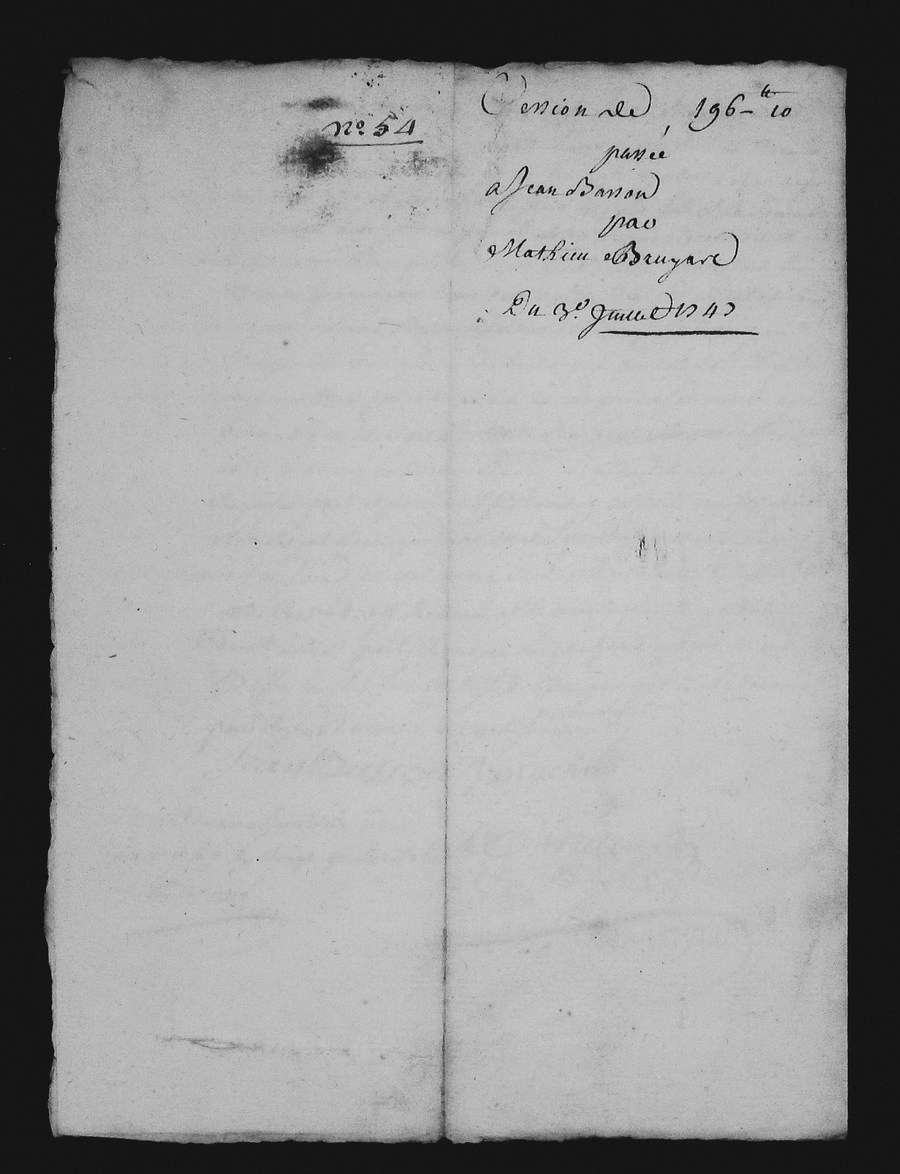 no. 54
Cession de 196 tt 10
passée
a Jean Basson
par
Mathieu Bruyare
Du 3e. Juillet 1743